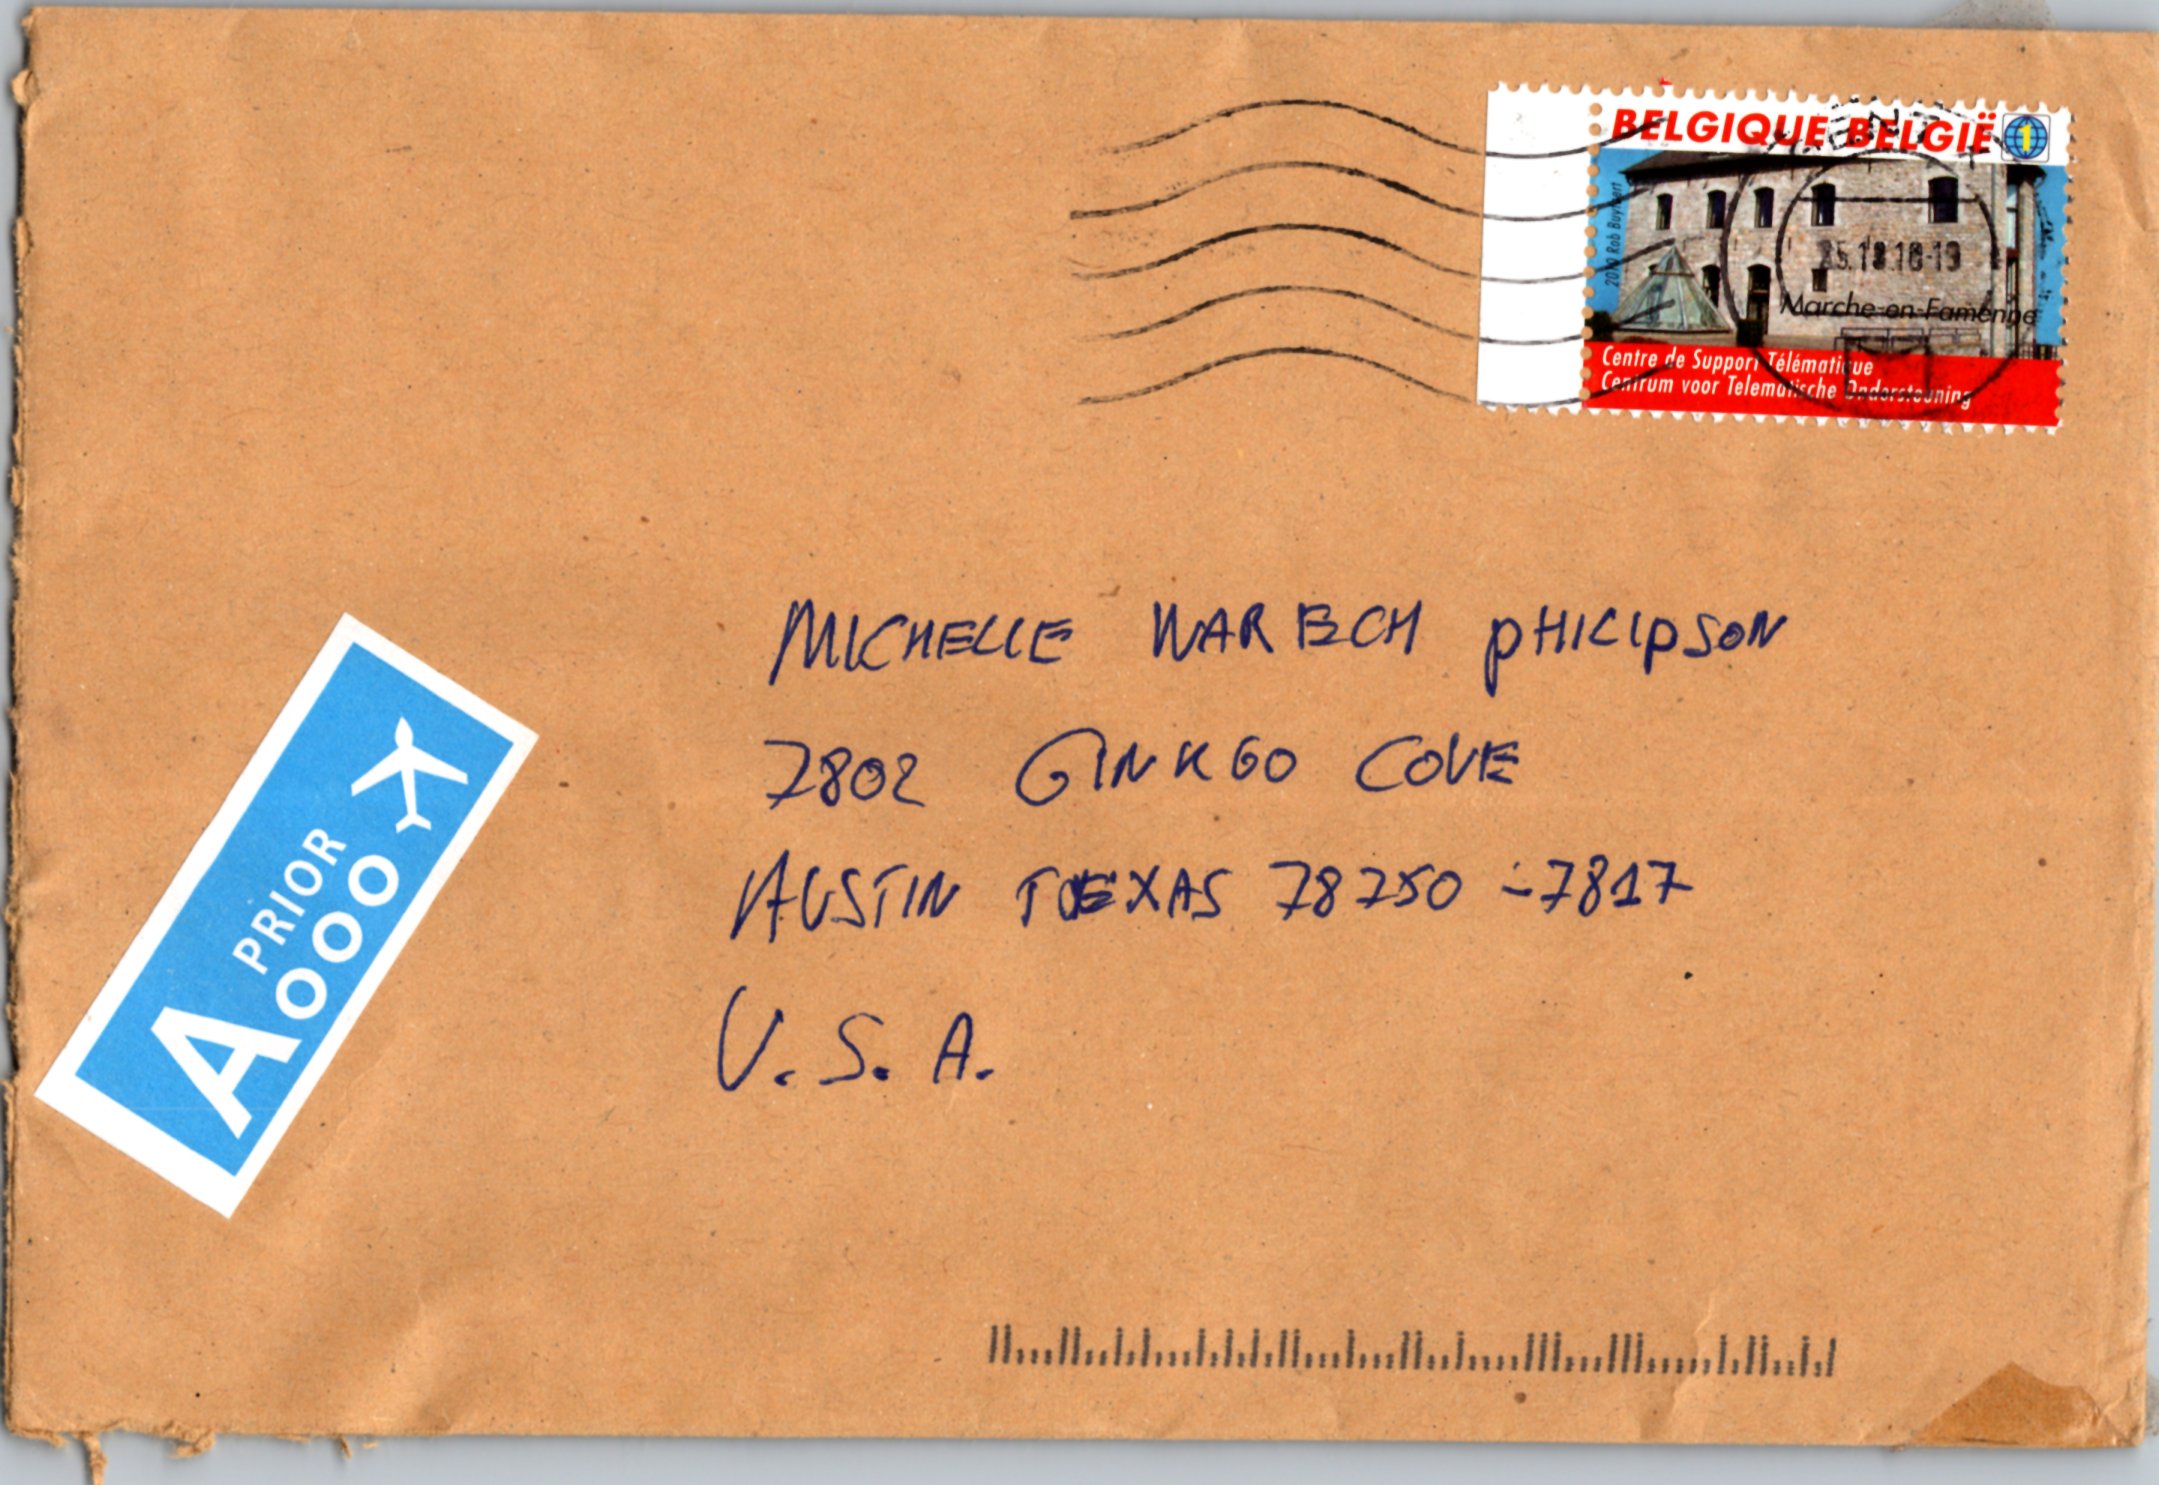 BELGIQUE BELGIË 1
2010 Rob Buytaert
25.10.10-19
Marche-en-Famenne
Centre de Support Télématique
Centrum voor Telematische Ondersteuning
MICHELLE WARECH PHILIPSON
7802 GINKGO COVE
AUSTIN TEXAS 78750-7817
U.S.A.
A PRIOR